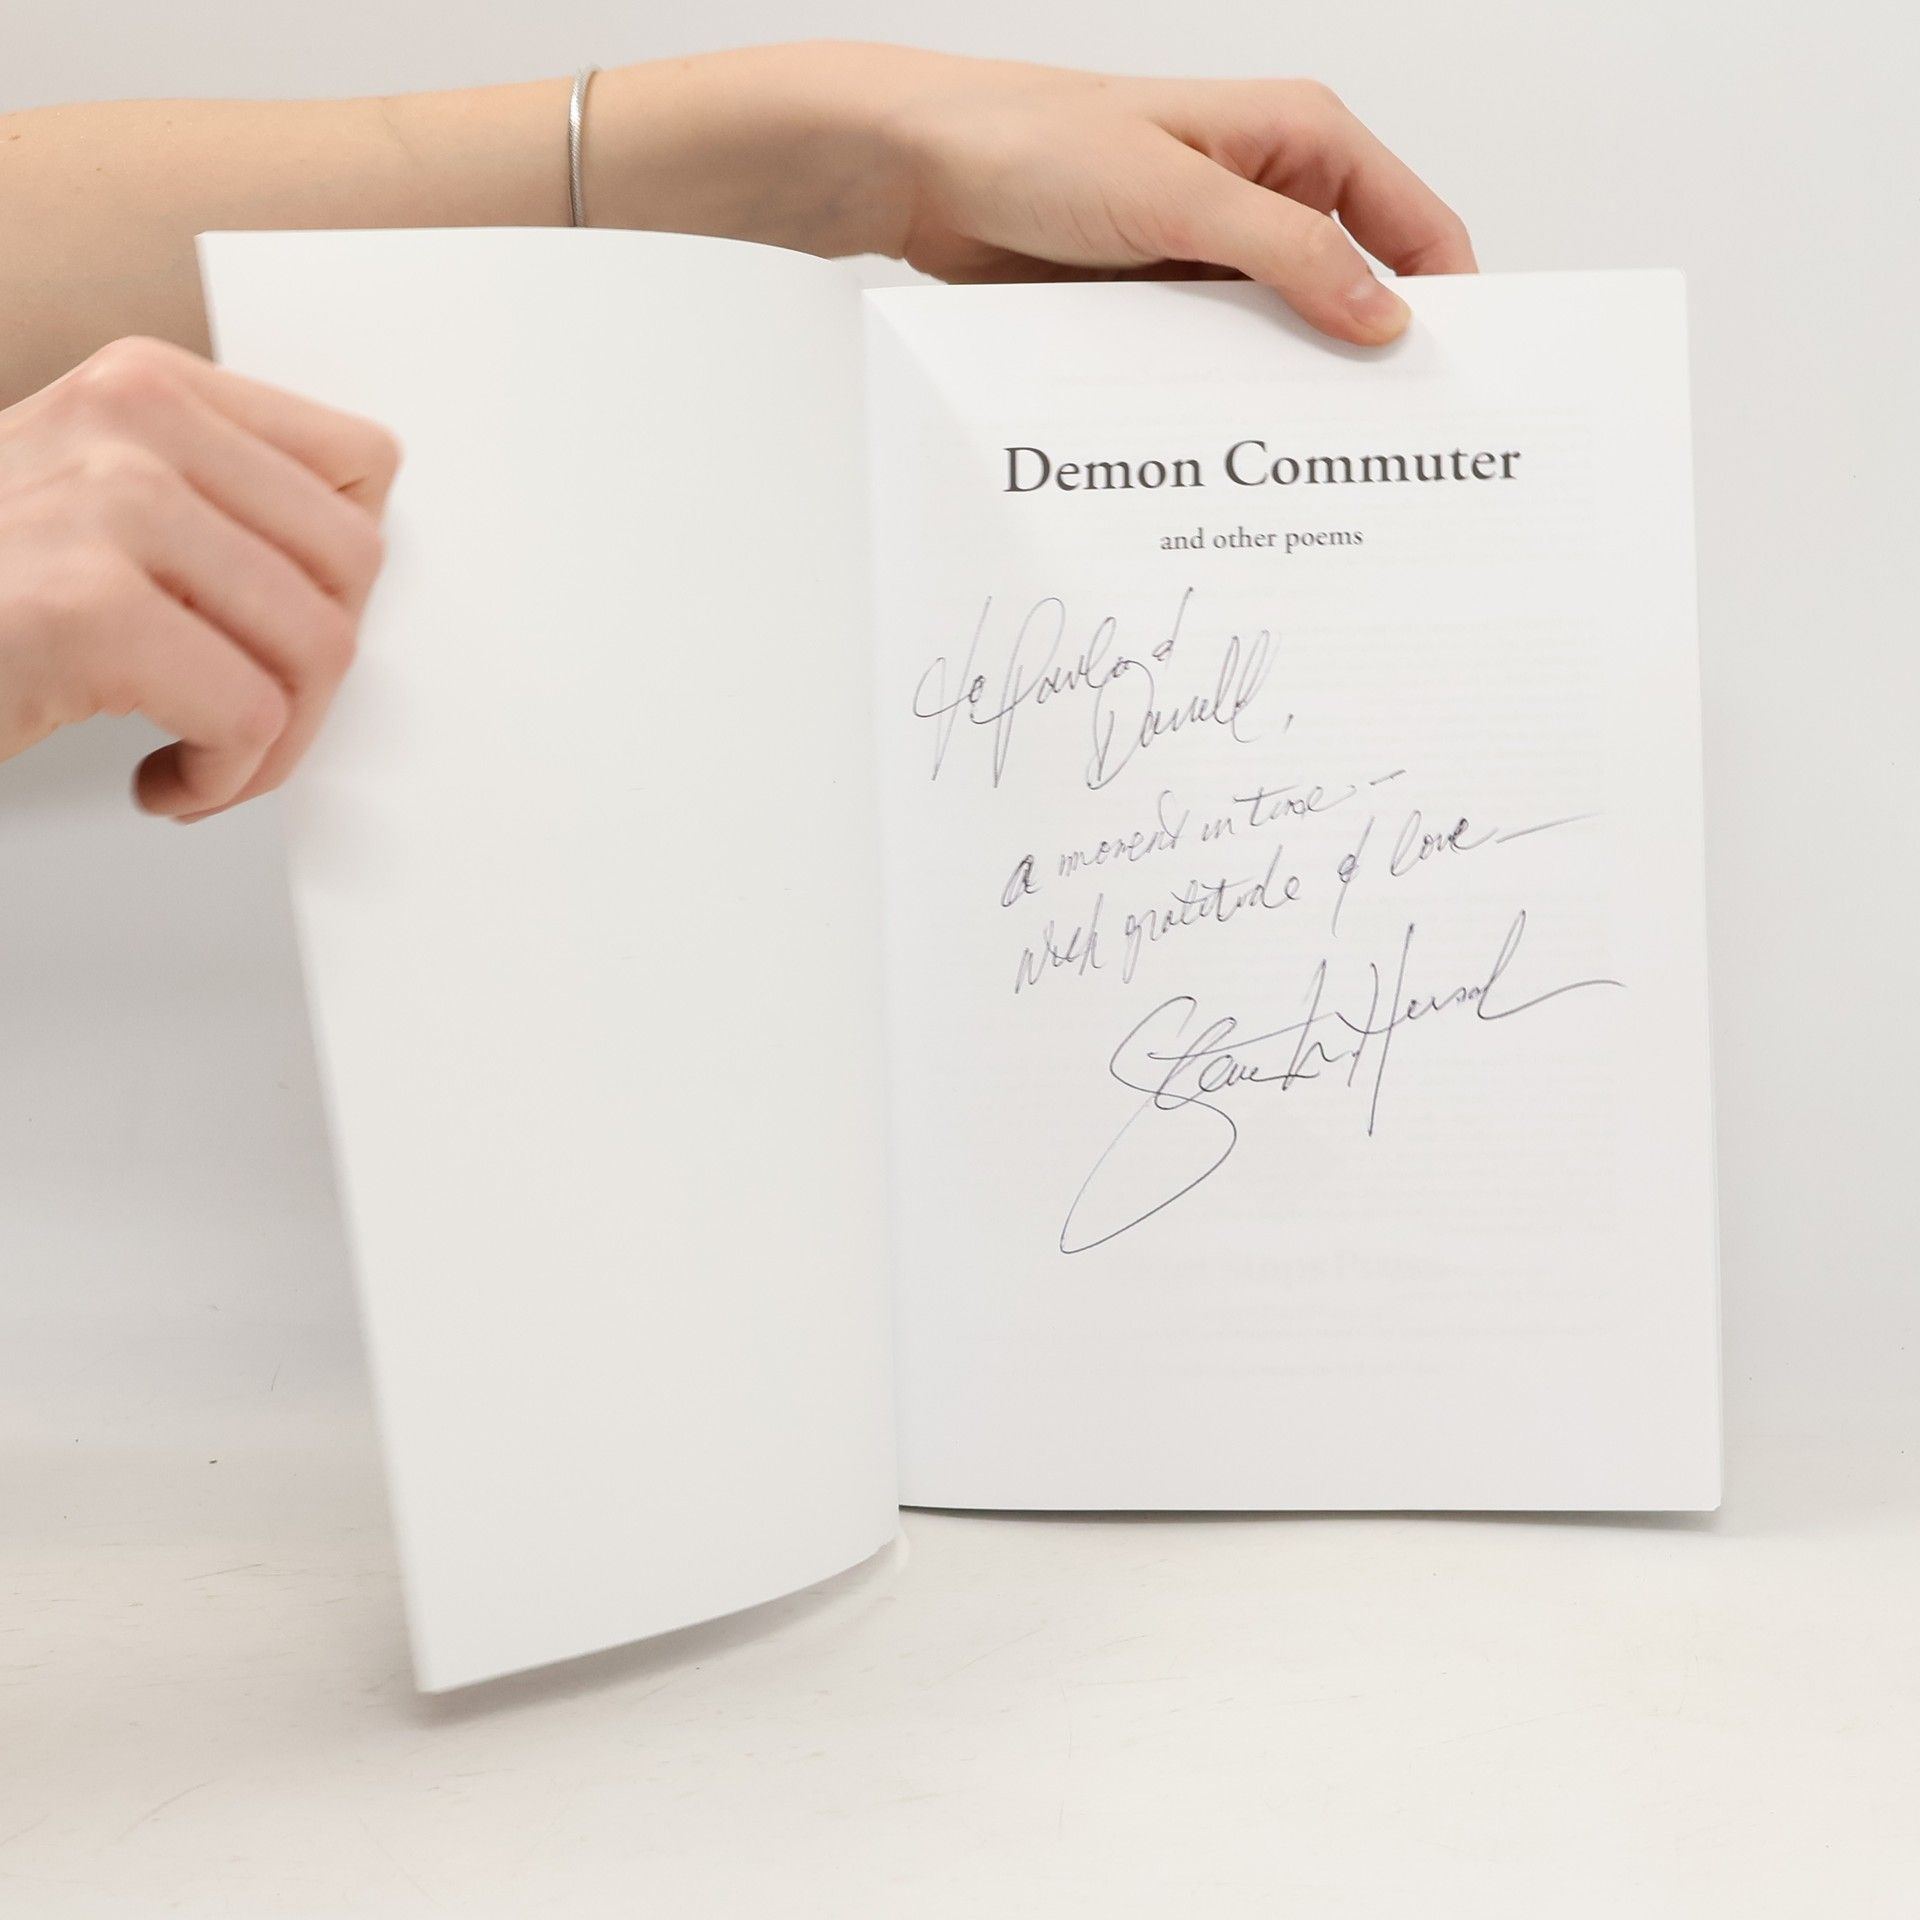 Demon Commuter
and other poems
To Rowland
Darrell,
a moment in time —
with gratitude & love —